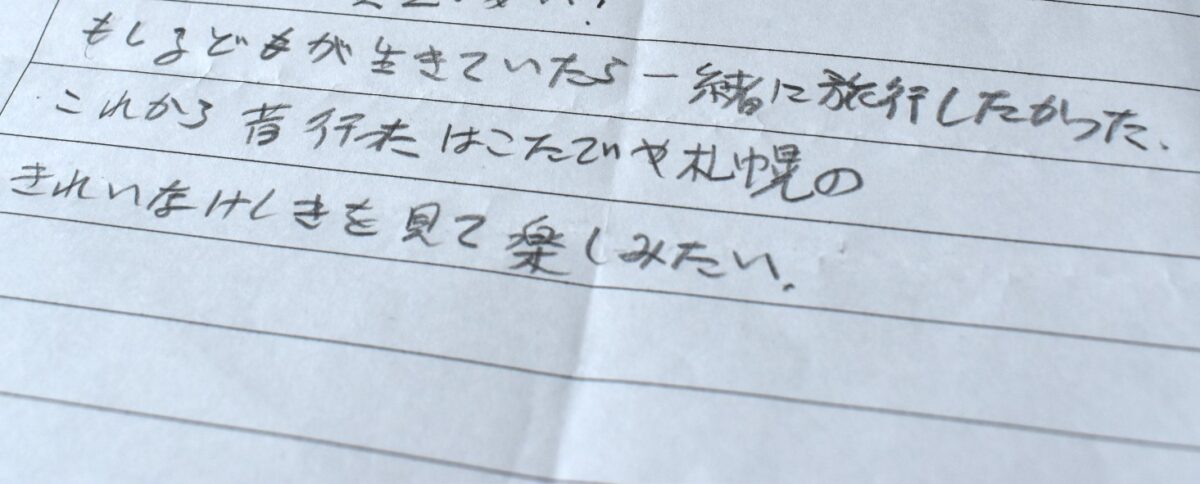 もし子どもが生きていたら一緒に旅行したかった.
これから昔行たはこだてや札幌の
きれいなけしきを見て楽しみたい.